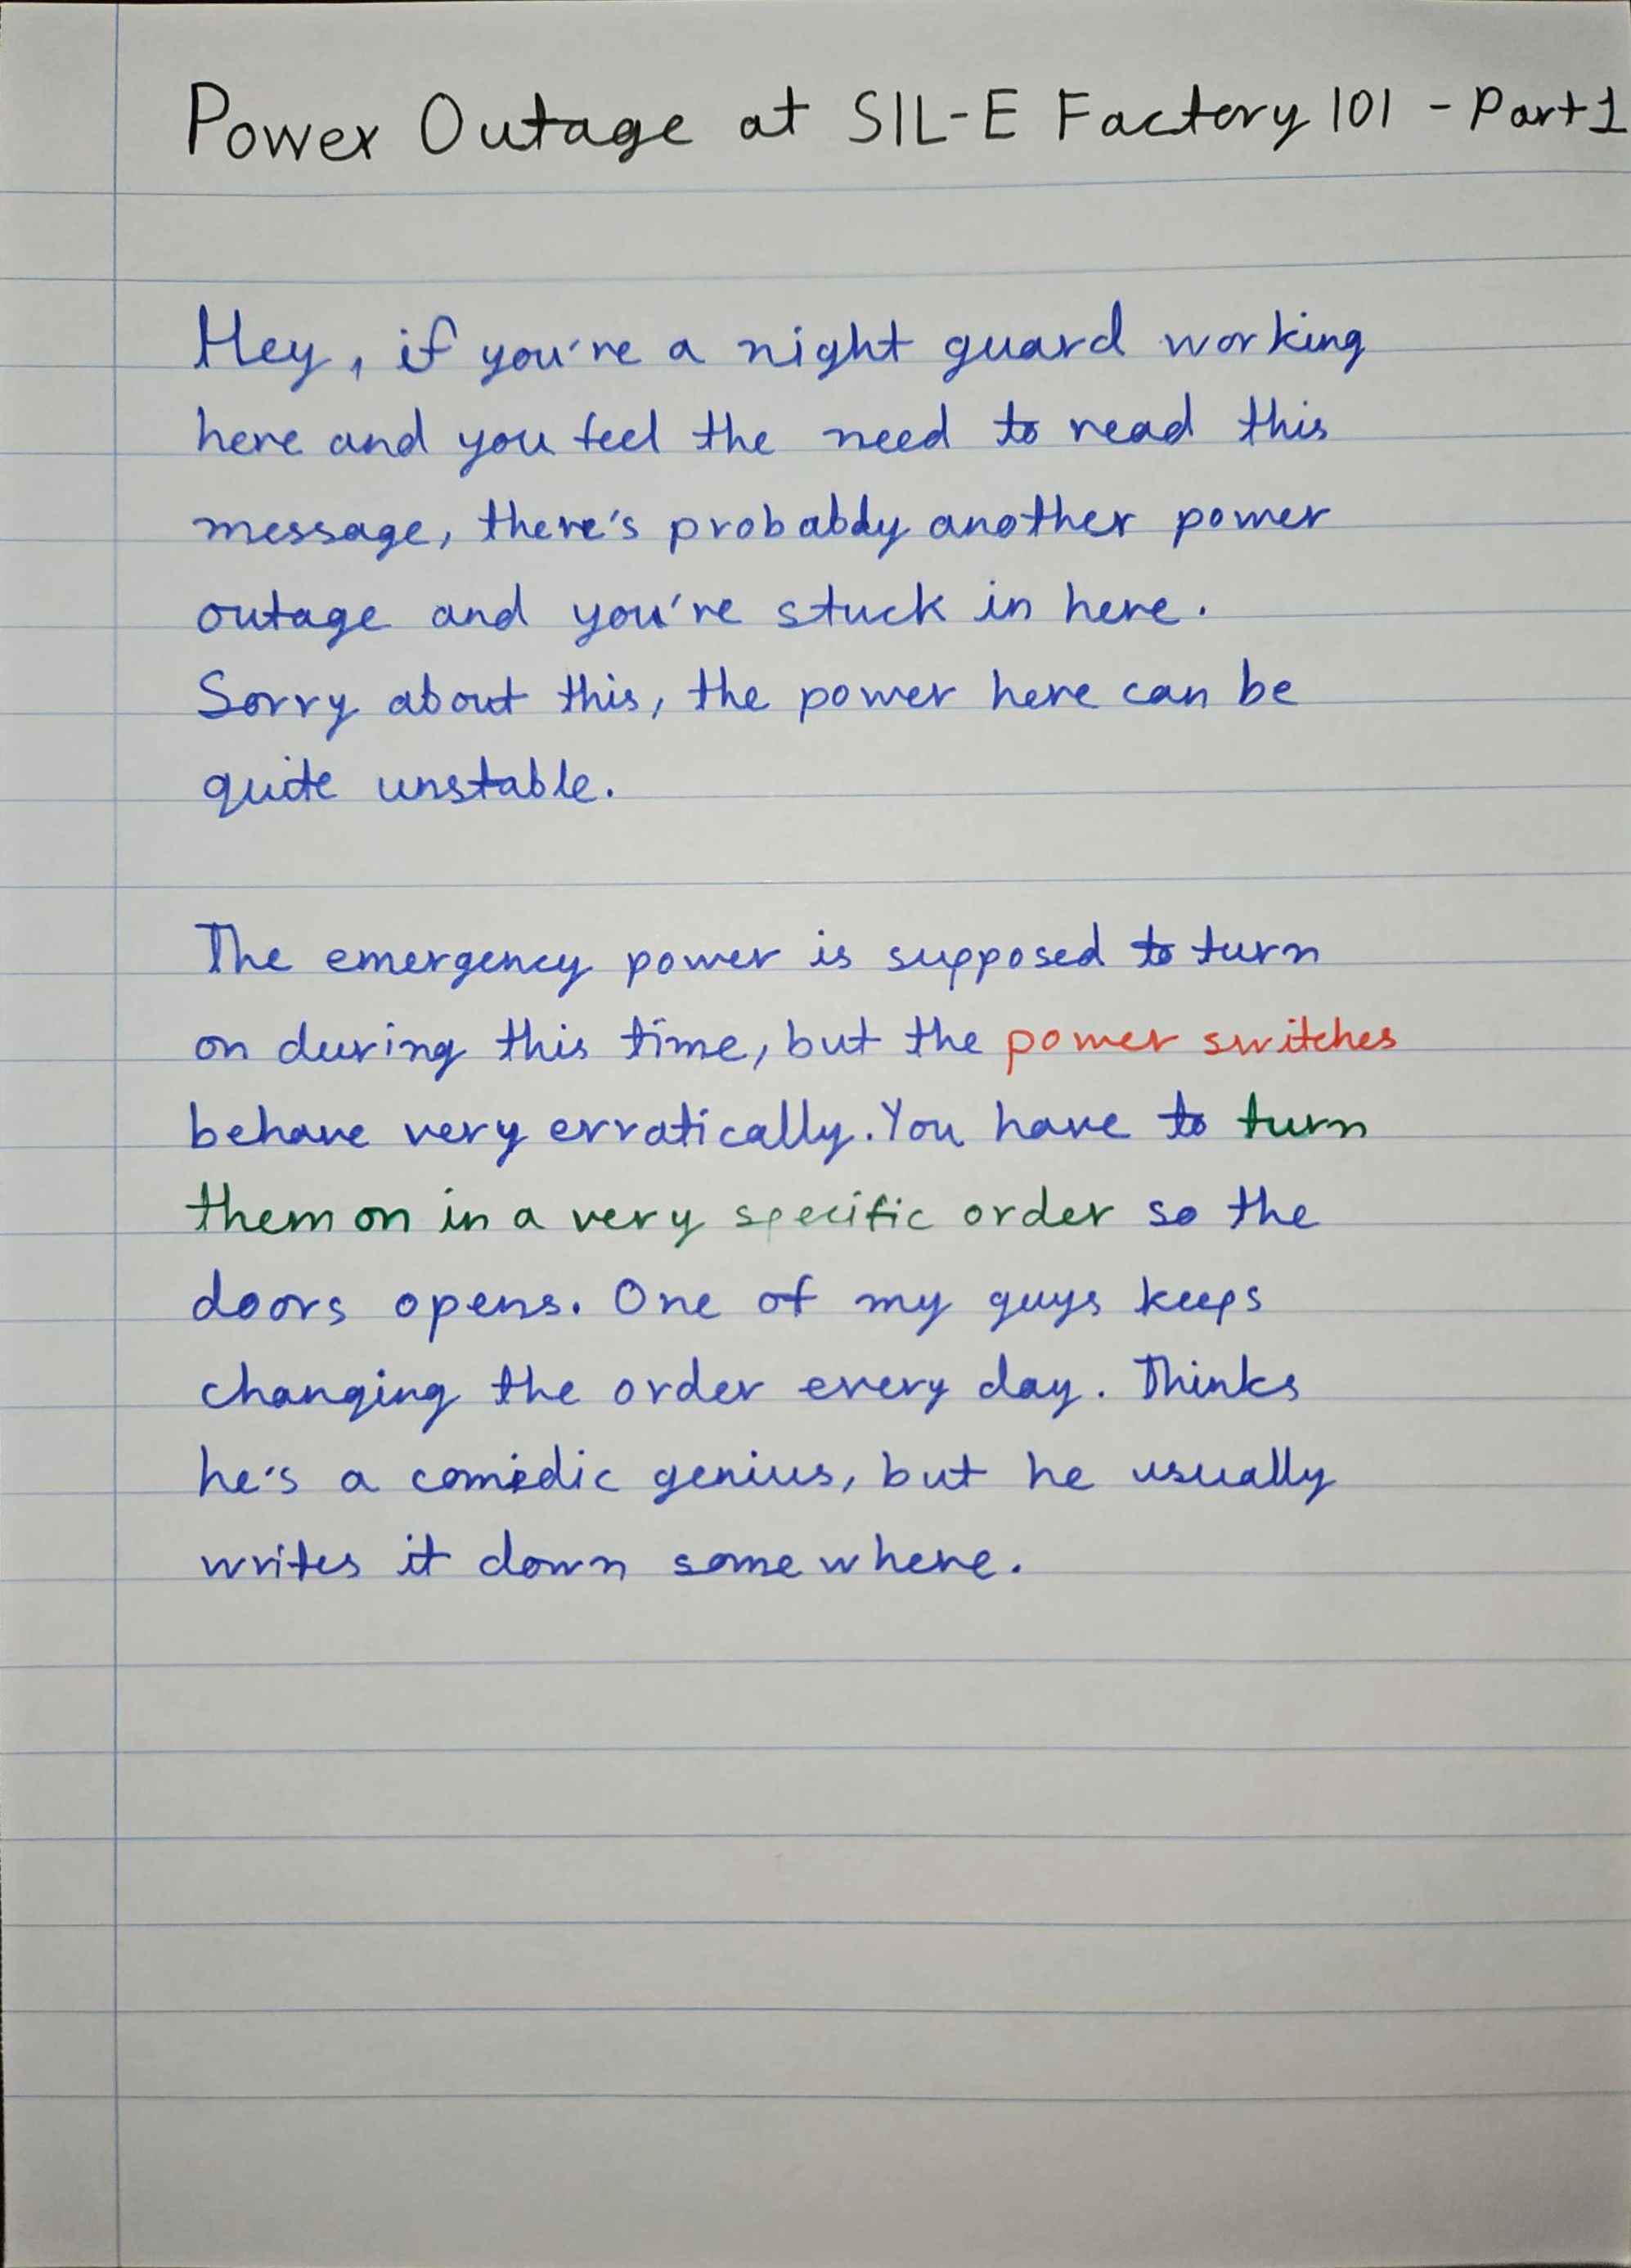 Power Outage at SIL-E Factory 101 - Part 1
Hey, if you're a night guard working
here and you feel the need to read this
message, there's probably another power
outage and you're stuck in here.
Sorry about this, the power here can be
quite unstable.
The emergency power is supposed to turn
on during this time, but the power switches
behave very erratically. You have to turn
them on in a very specific order so the
doors opens. One of my guys keeps
changing the order every day. Thinks
he's a comedic genius, but he usually
writes it down somewhere.